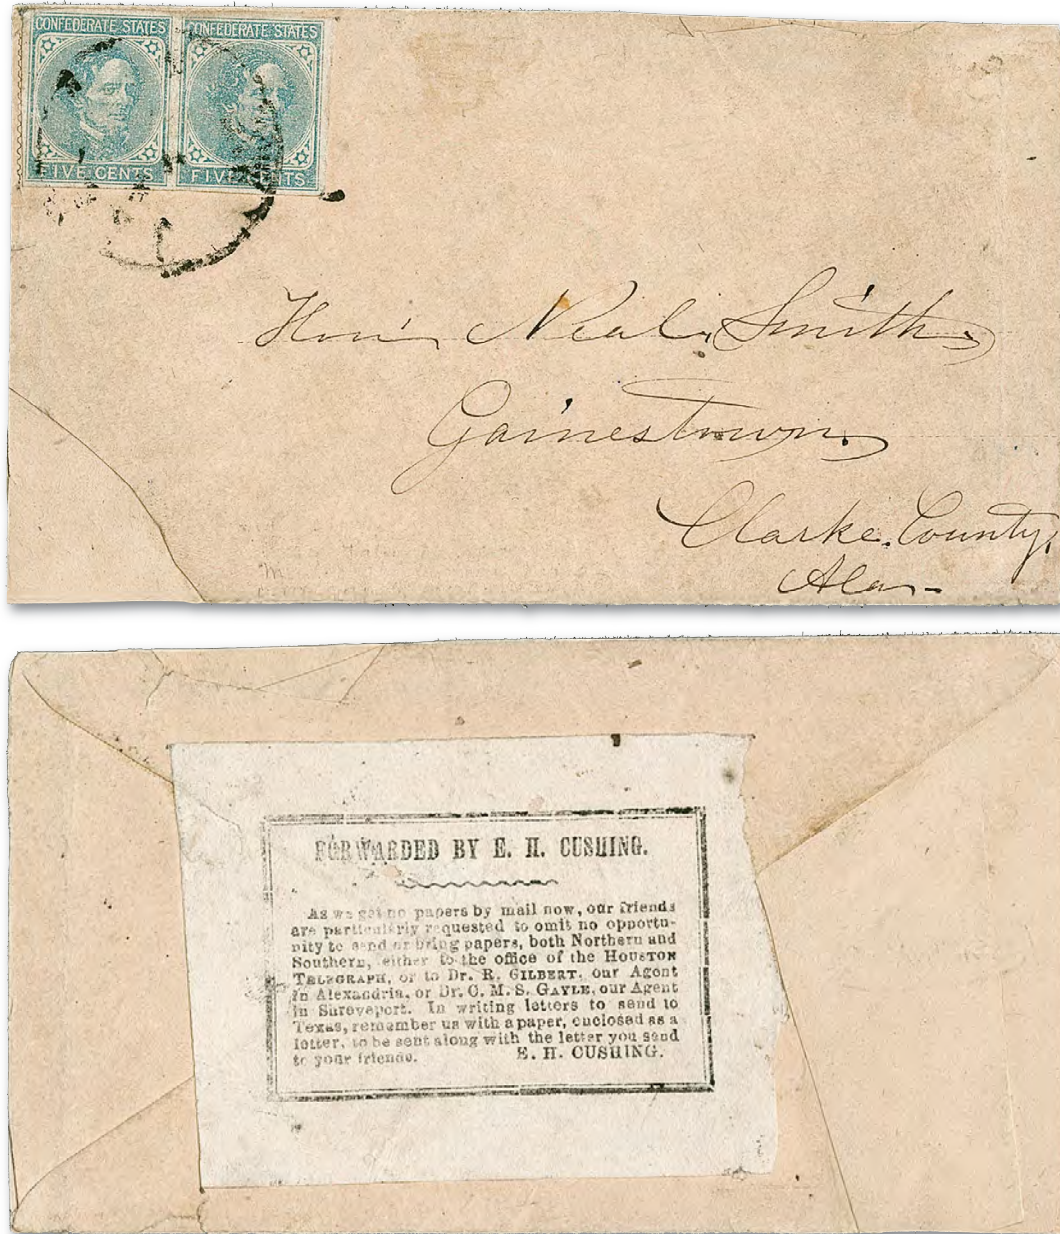 CONFEDERATE STATES CONFEDERATE STATES
FIVE CENTS FIVE CENTS
Hon. Neal Smith
Gainestown.
Clarke County,
Ala-
FORWARDED BY E. H. CUSHING.
As we get no papers by mail now, our friends
are particularly requested to omit no opportu-
nity to send or bring papers, both Northern and
Southern, either to the office of the HOUSTON
TELEGRAPH, or to Dr. R. GILBERT, our Agent
in Alexandria, or Dr. C. M. S. GAYLE, our Agent
in Shreveport. In writing letters to send to
Texas, remember us with a paper, enclosed as a
letter, to be sent along with the letter you send
to your friends. E. H. CUSHING.